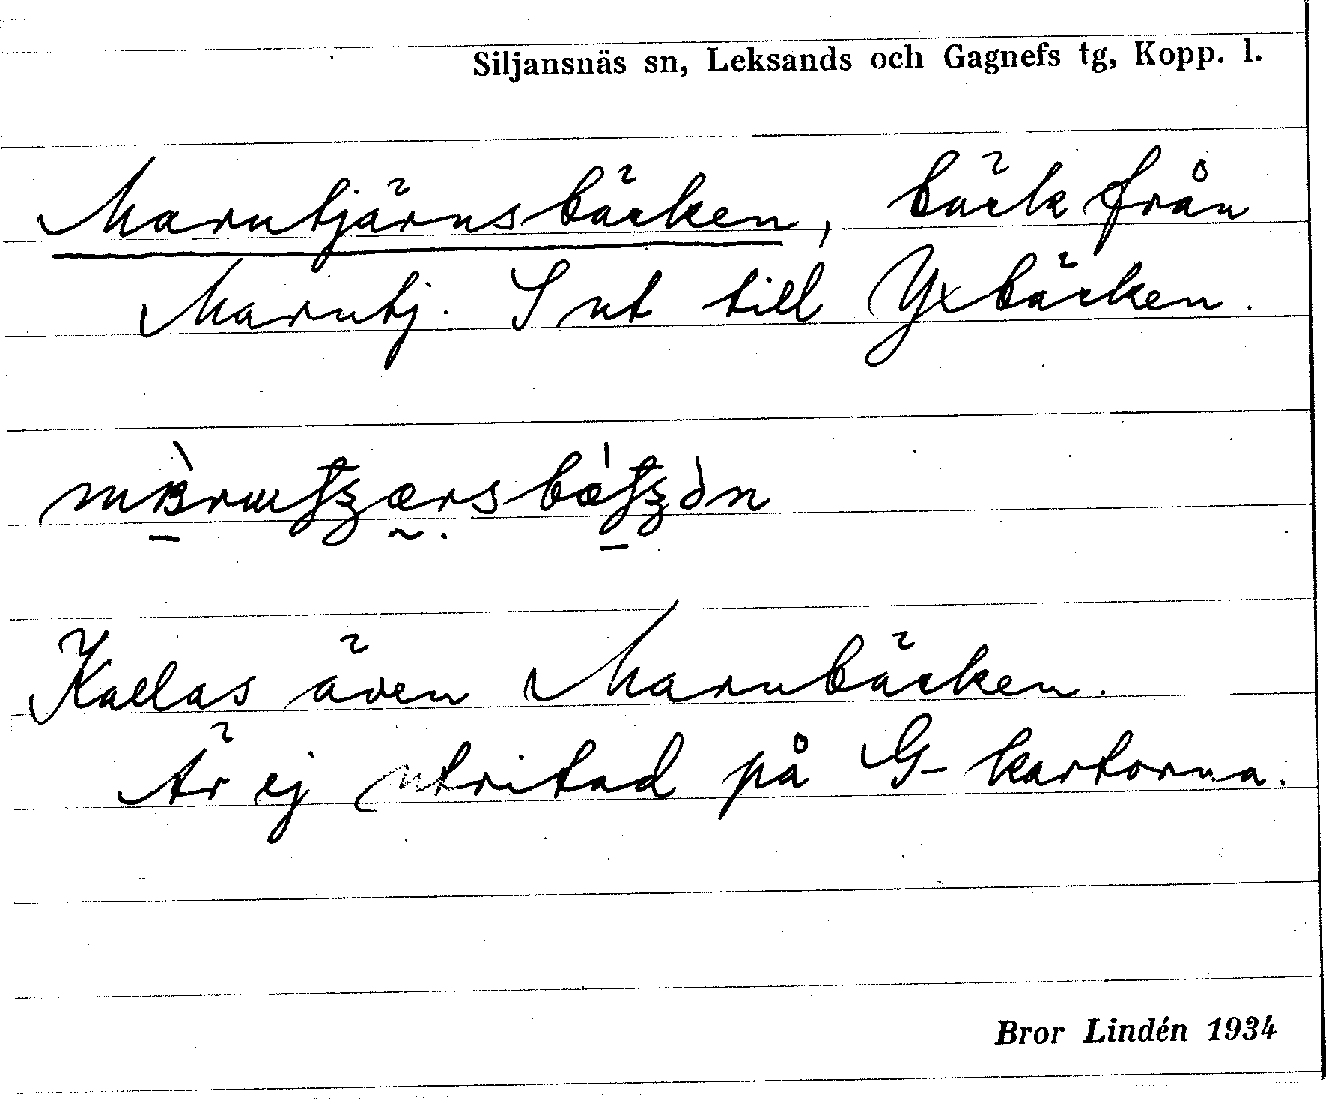 Siljansnäs sn, Leksands och Gagnefs tg, Kopp. l.
Marutjärnsbäcken, bäck från
Marutj. S ut till Yxbäcken.
Kallas även Marubäcken.
Är ej utritad på G-kartorna.
Bror Lindén 1934